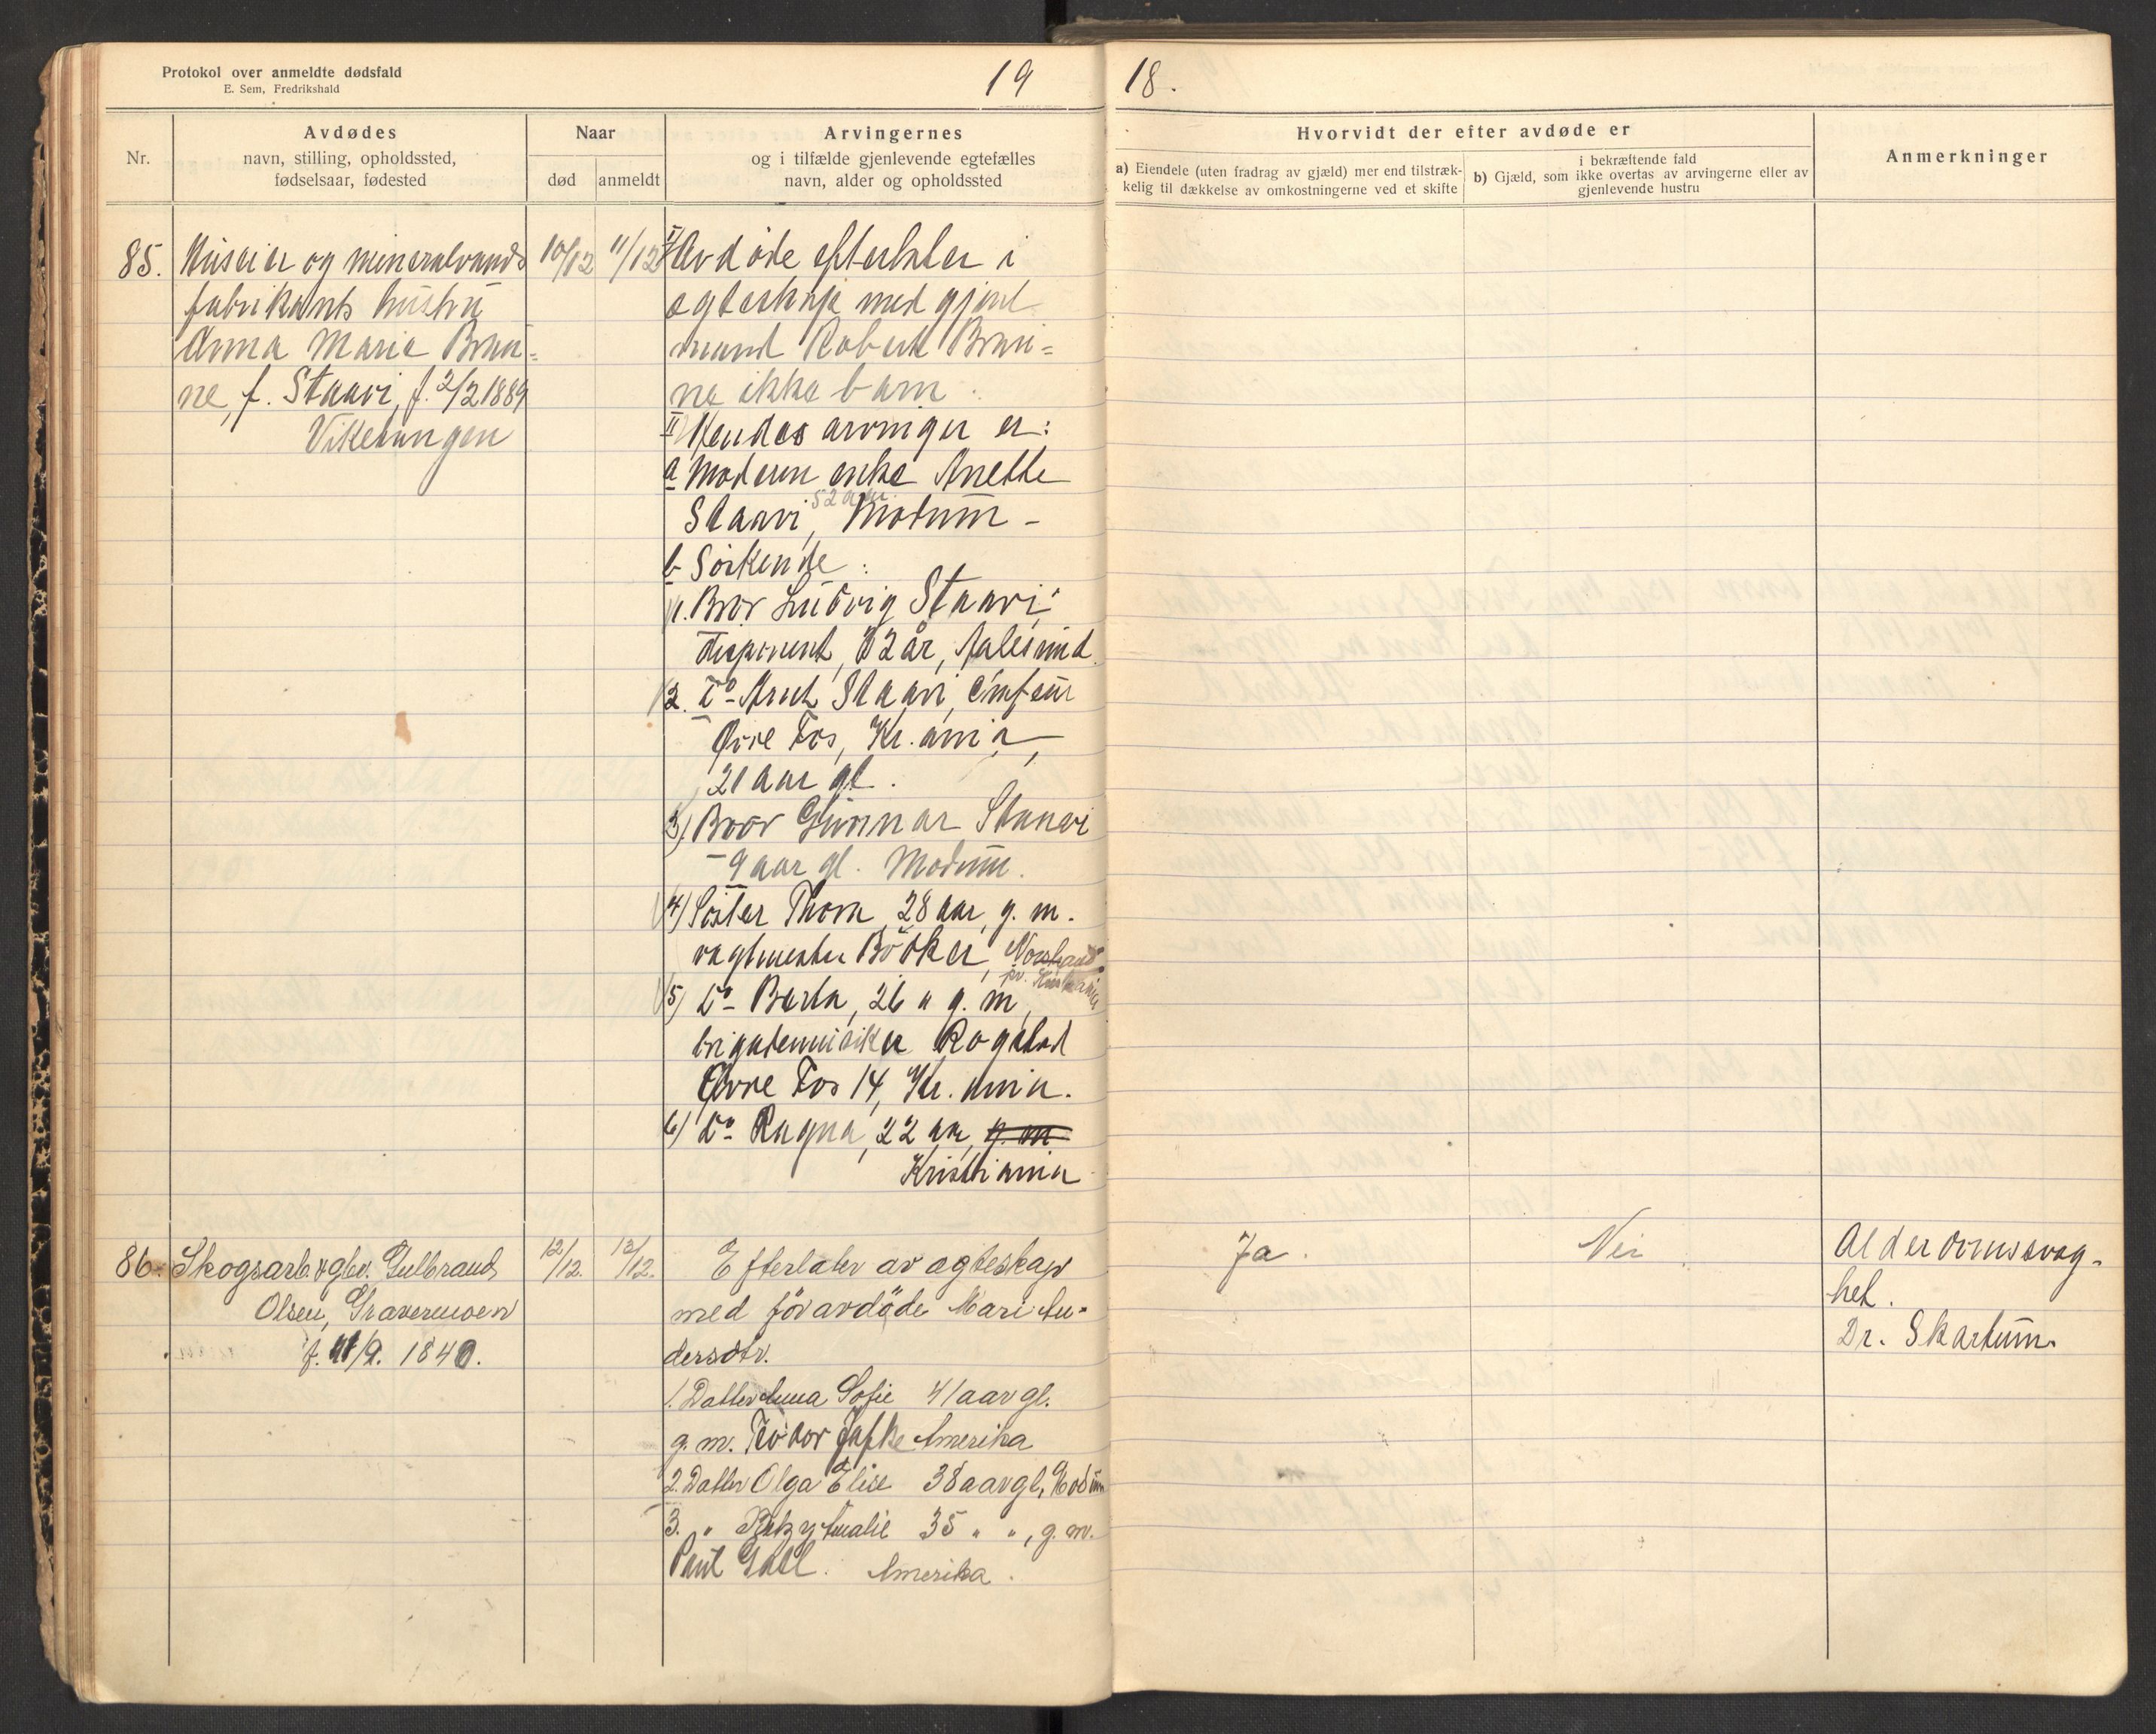 Protokol over anmeldte dødsfald
E. Sem, Fredrikshald
19
18.
Nr.
Avdødes
navn, stilling, opholdssted,
fødselsaar, fødested
Naar
død
anmeldt
Arvingernes
og i tilfælde gjenlevende egtefælles
navn, alder og opholdssted
Hvorvidt der efter avdøde er
a) Eiendele (uten fradrag av gjæld) mer end tilstræk-
kelig til dækkelse av omkostningerne ved et skifte
i bekræftende fald
b) Gjæld, som ikke overtas av arvingerne eller av
gjenlevende hustru
Anmerkninger
85.
Huseier og mineralvands
fabrikants hustru
Anna Marie Brau=
ne, f. Staavi, f. 2/2 1889
Vikesungen
10/12
11/12
I Avdøde efterlater i
egteskap med gjenl.
mand Robert Brau=
ne ikke barn.
II Hendes arvinger er:
a Moderen enke Anette
Staavi, 52 aar Modum -
b Søskende:
1. Bror Ludvig Staavi,
disponent, 32 år, Aalesund.
2. Do Arnt Staavi,
Øvre Fos, Kr.ania,
21 aar gl.
3) Bror Gunnar Staavi
9 aar gl. Modum.
4) Søster Thora, 28 aar, g. m.
vagtmester Bööker, Norstrand
pr. Kristiania
5) Do Berta, 26 " g. m.
brigademusiker Rogstad
Øvre Fos 14, Kr.ania.
6) Do Ragna, 22 aar, g. m
Kristiania
86.
Skogsarb. & gbr. Gulbrand
Olsen, Gravermoen
f. 11/9. 1840.
12/12.
13/12.
Efterlater av ægteskap
med før avdöde Mari An-
dersdtr.
1. Datter Anna Sofie 41 aar gl.
g. m. Teodor Jafke Amerika
2. Datter Olga Elise 38 aar gl, Modum
3. " Amalie 35 " ", g. m.
Paul Gall. Amerika.
Ja.
Nei
Alderdomssvag-
het.
Dr. Skartum.